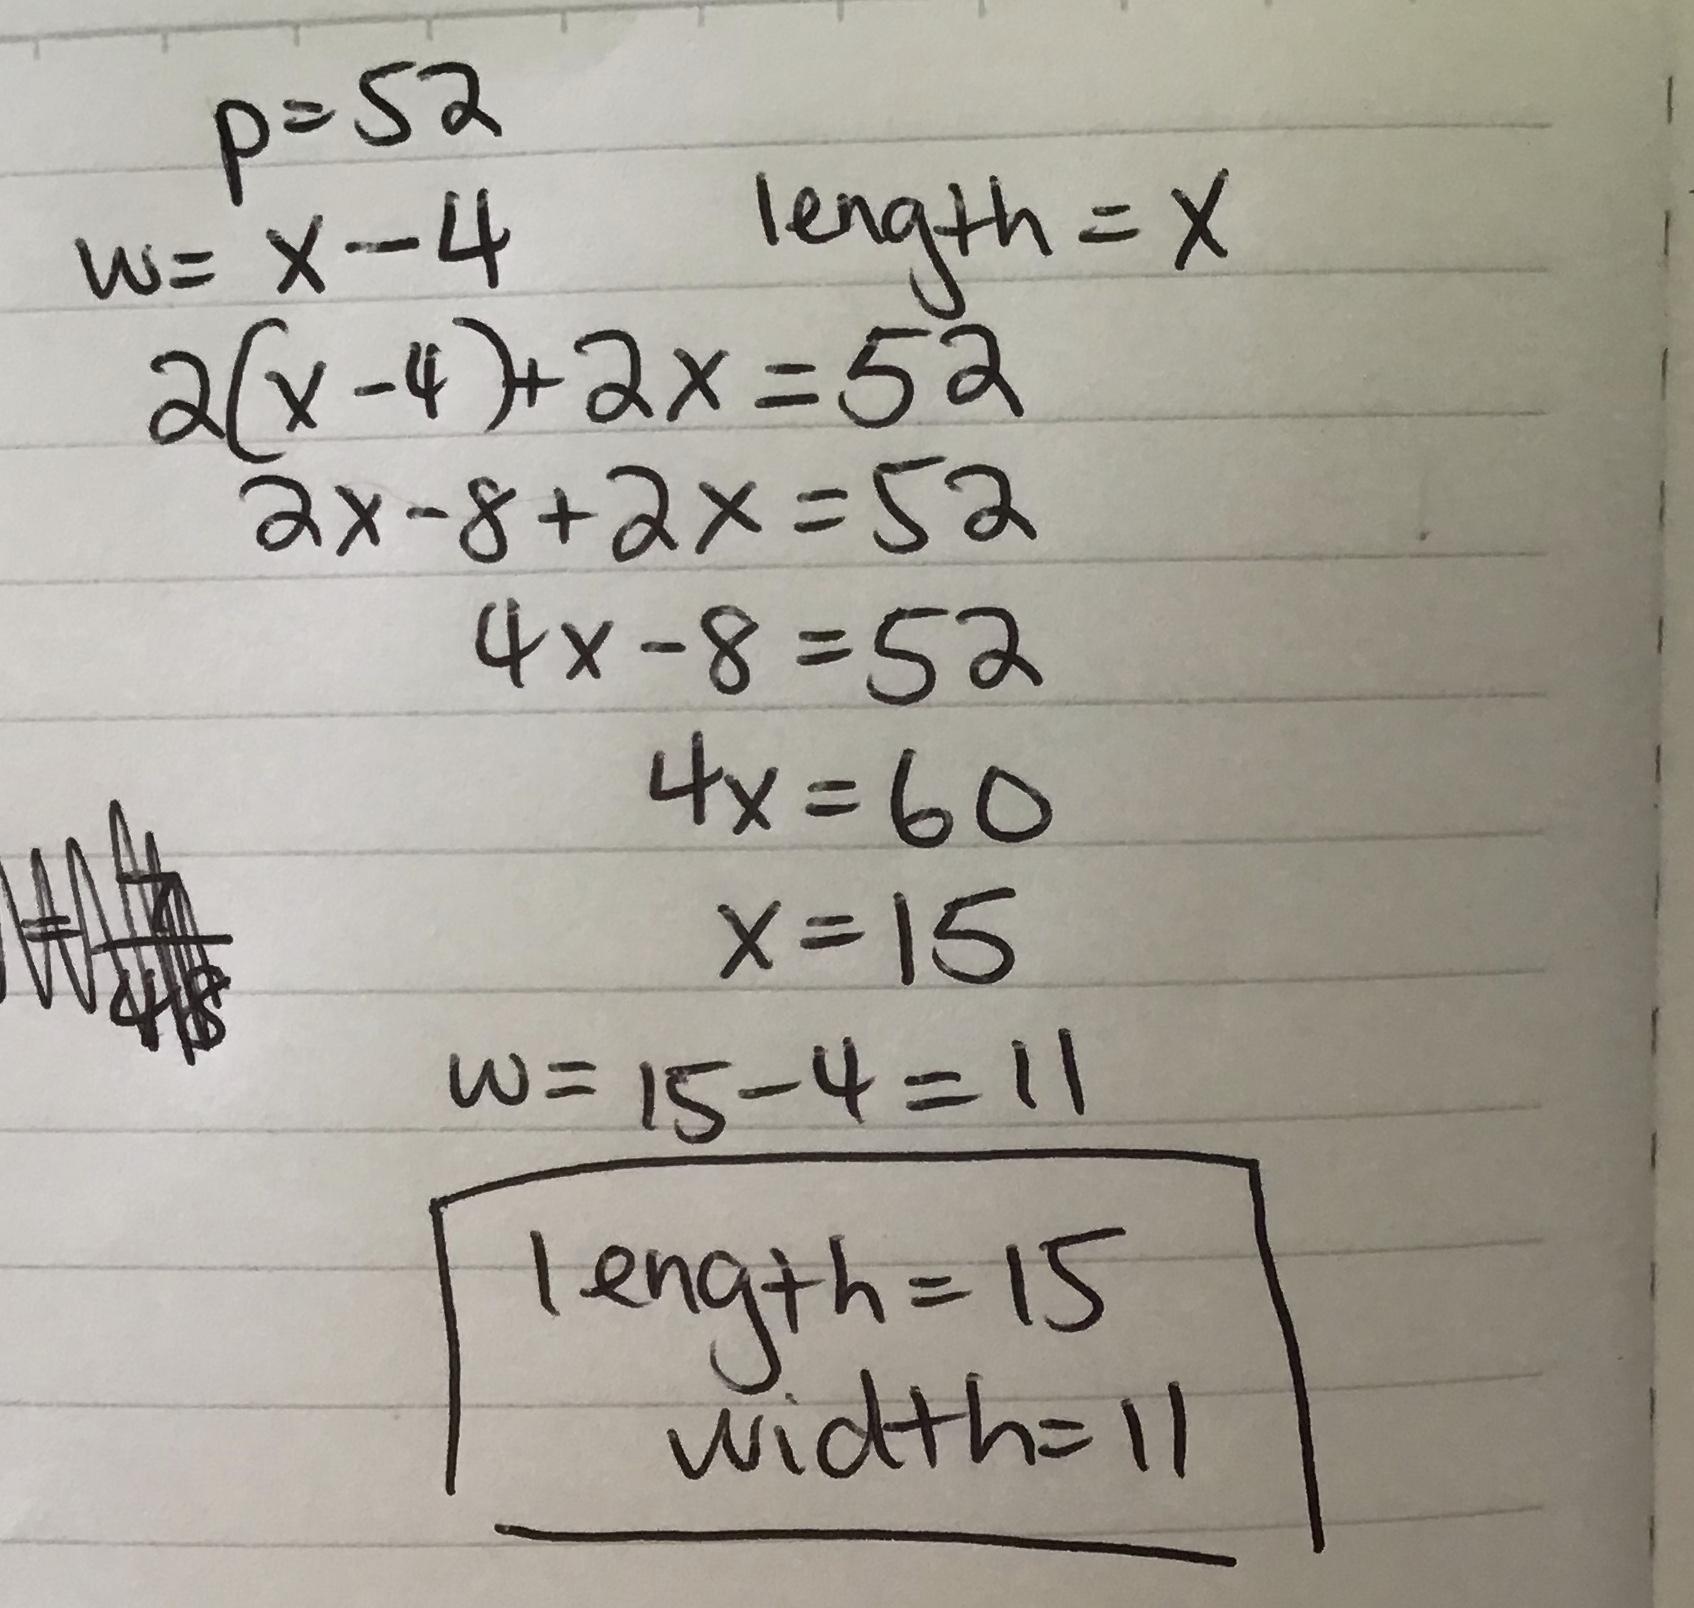 p=52
w= x-4 length = x
2(x-4)+2x=52
2x-8+2x=52
4x-8=52
4x=60
x=15
w=15-4=11
length=15
width=11